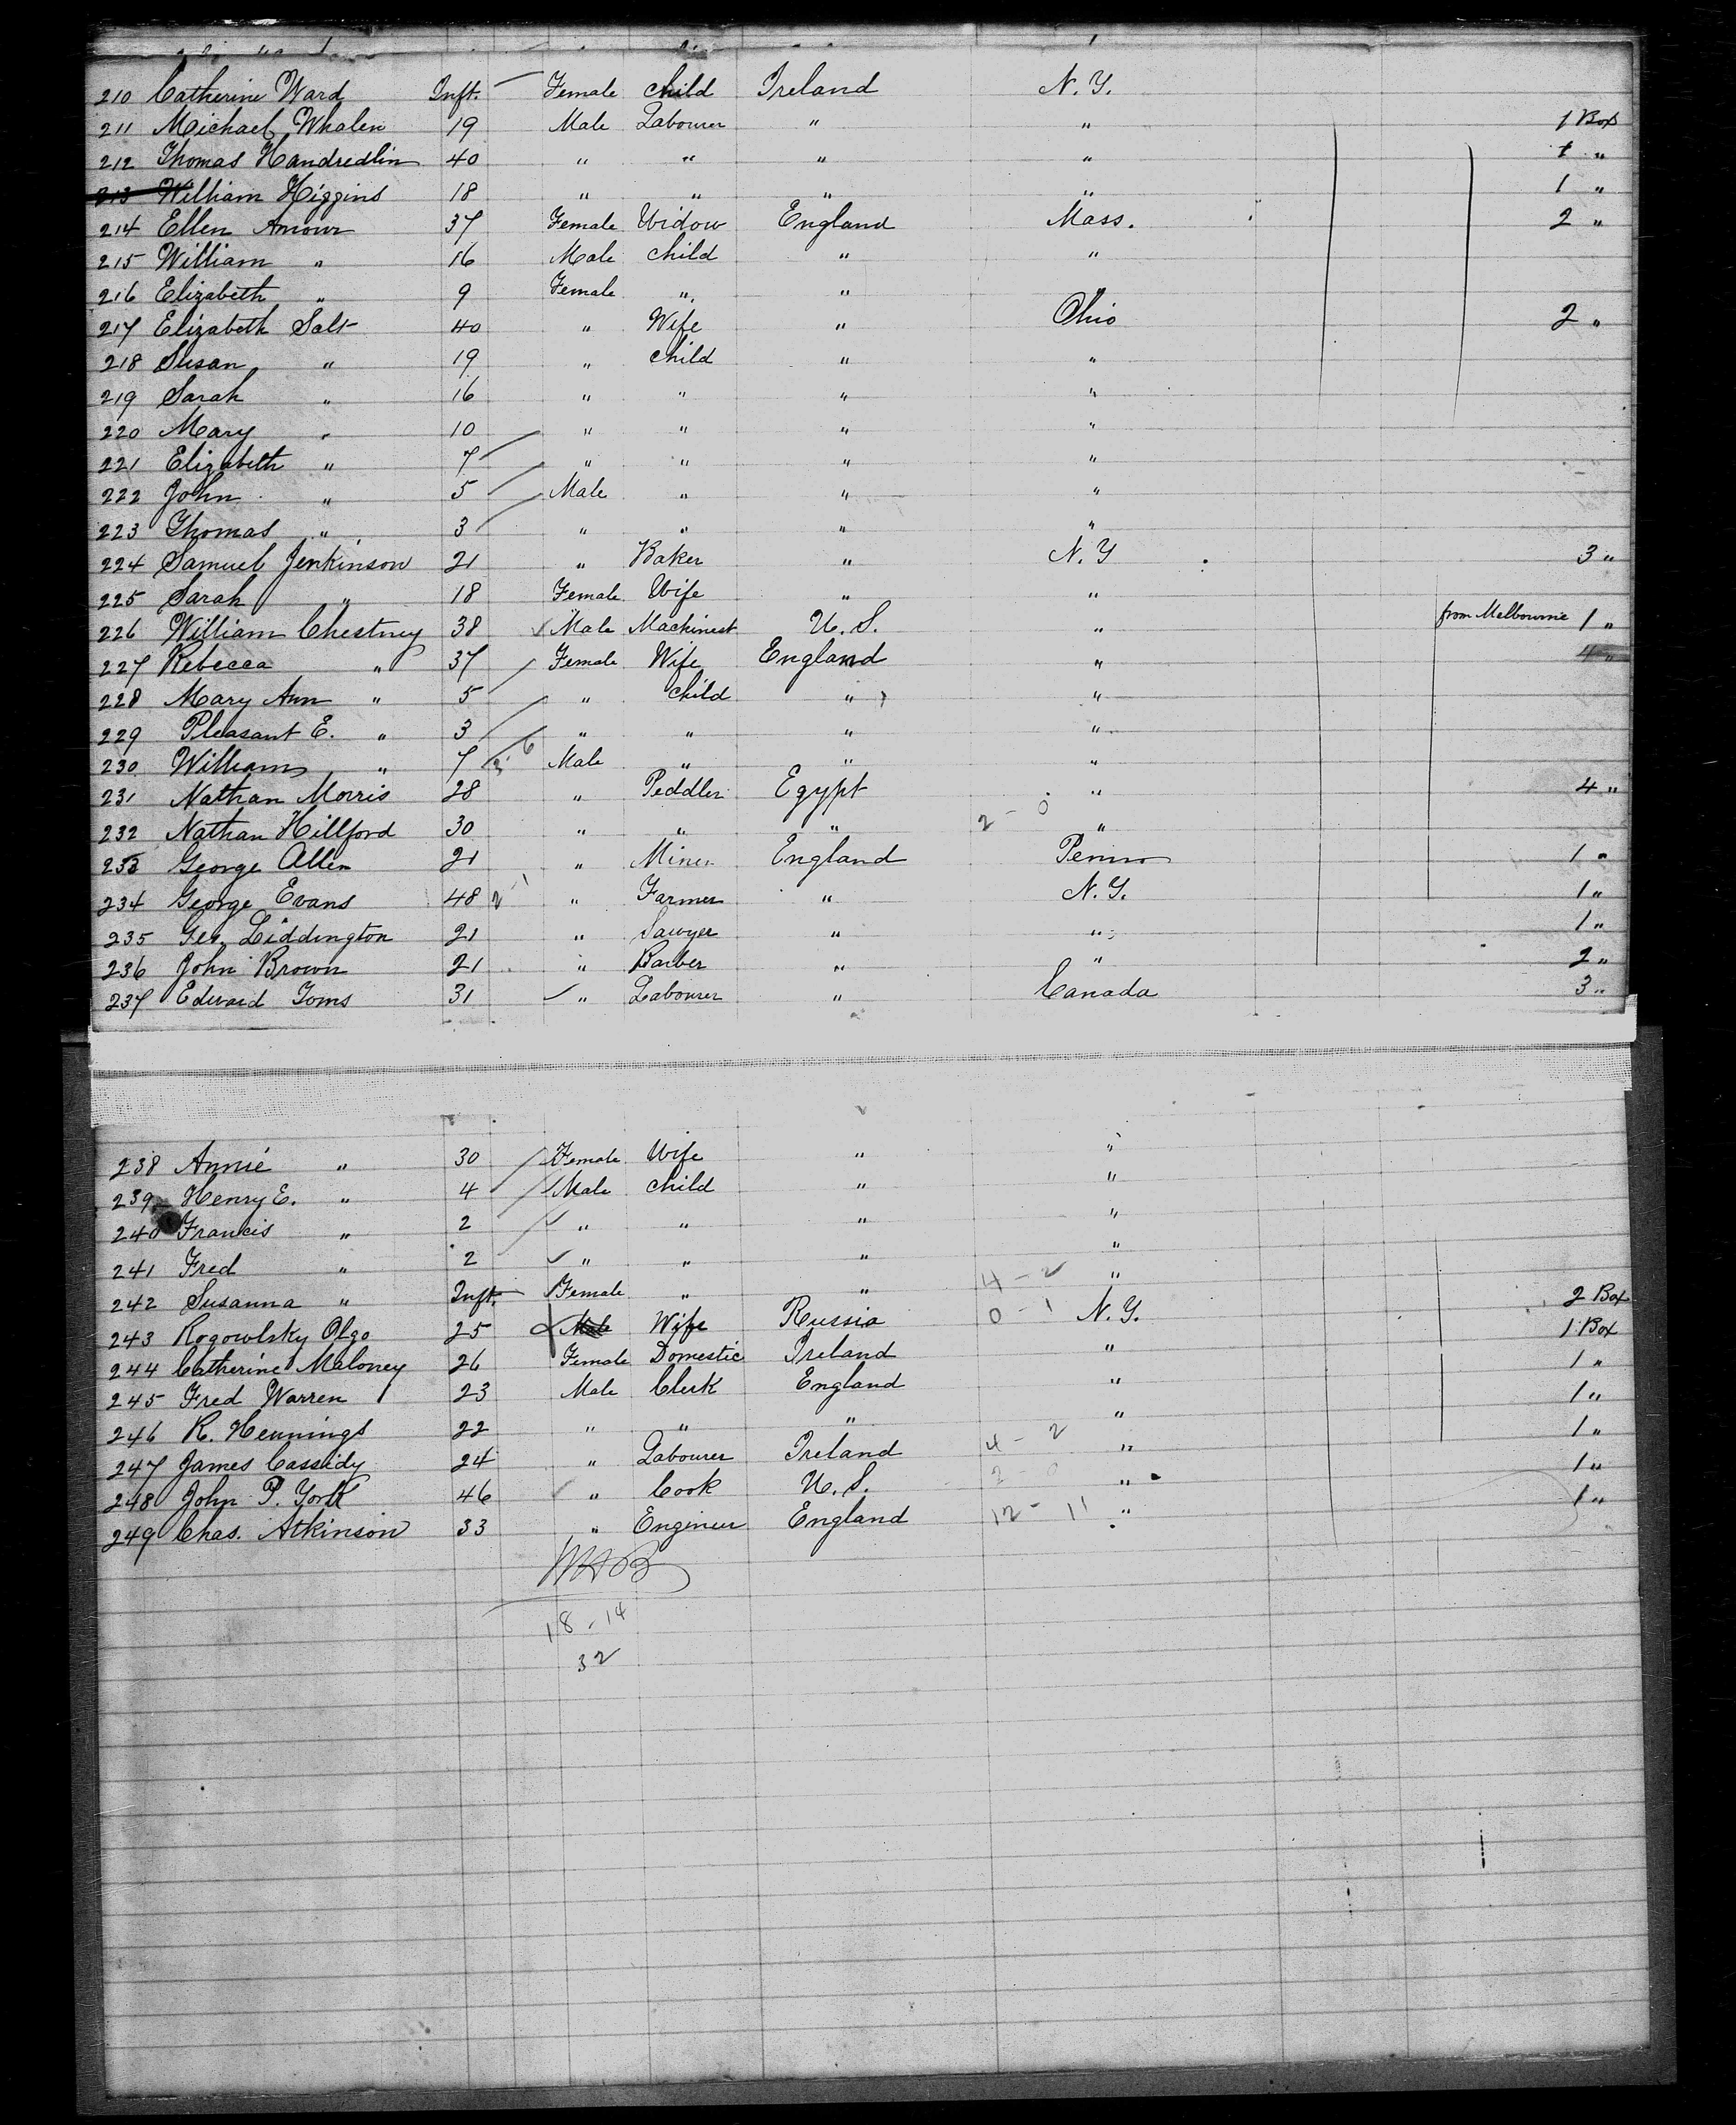 210 Catherine Ward Inft. Female Child Ireland N.Y.
211 Michael Whalen 19 Male Labourer " " 1 Box
212 Thomas Handredlin 40 " " " " 1 "
213 William Higgins 18 " " " " 1 "
214 Ellen Amour 37 Female Widow England Mass. 2 "
215 William " 16 Male Child " "
216 Elizabeth " 9 Female " " "
217 Elizabeth Salt 40 " Wife " Ohio 2 "
218 Susan " 19 " Child " "
219 Sarah " 16 " " " "
220 Mary " 10 " " " "
221 Elizabeth " 7 " " " "
222 John " 5 Male " " "
223 Thomas " 3 " " " "
224 Samuel Jenkinson 21 " Baker " N.Y 3 "
225 Sarah " 18 Female Wife " "
226 William Chestney 38 Male Machinest U.S. " from Melbourne 1 "
227 Rebecca " 37 Female Wife England " 4 "
228 Mary Ann " 5 " Child " "
229 Pleasant E. " 3 " " " "
230 William " 7 Male " " "
231 Nathan Morris 28 " Peddler Egypt " 4 "
232 Nathan Hillford 30 " " " 2 - 0 "
233 George Allen 21 " Miner England Penna 1 "
234 George Evans 48 2 - 1 " Farmer " N.Y. 1 "
235 Geo. Liddington 21 " Sawyer " " 1 "
236 John Brown 21 " Barber " " 2 "
237 Edward Toms 31 " Labourer " Canada 3 "
238 Annie " 30 Female Wife " "
239 Henry E. " 4 Male Child " "
240 Francis " 2 " " " "
241 Fred " 2 " " " "
242 Susanna " Inft. Female " " 4 - 2 " 2 Box
243 Rogowlsky Olgo 25 Male Wife Russia 0 - 1 N.Y. 1 Box
244 Catherine Maloney 26 Female Domestic Ireland " 1 "
245 Fred Warren 23 Male Clerk England " 1 "
246 R. Hennings 22 " " " " 1 "
247 James Cassidy 24 " Labourer Ireland 4 - 2 " 1 "
248 John P. York 46 " Cook U.S. 2 - 0 " 1 "
249 Chas. Atkinson 33 " Engineer England 12 - 11 "
18 - 14
32